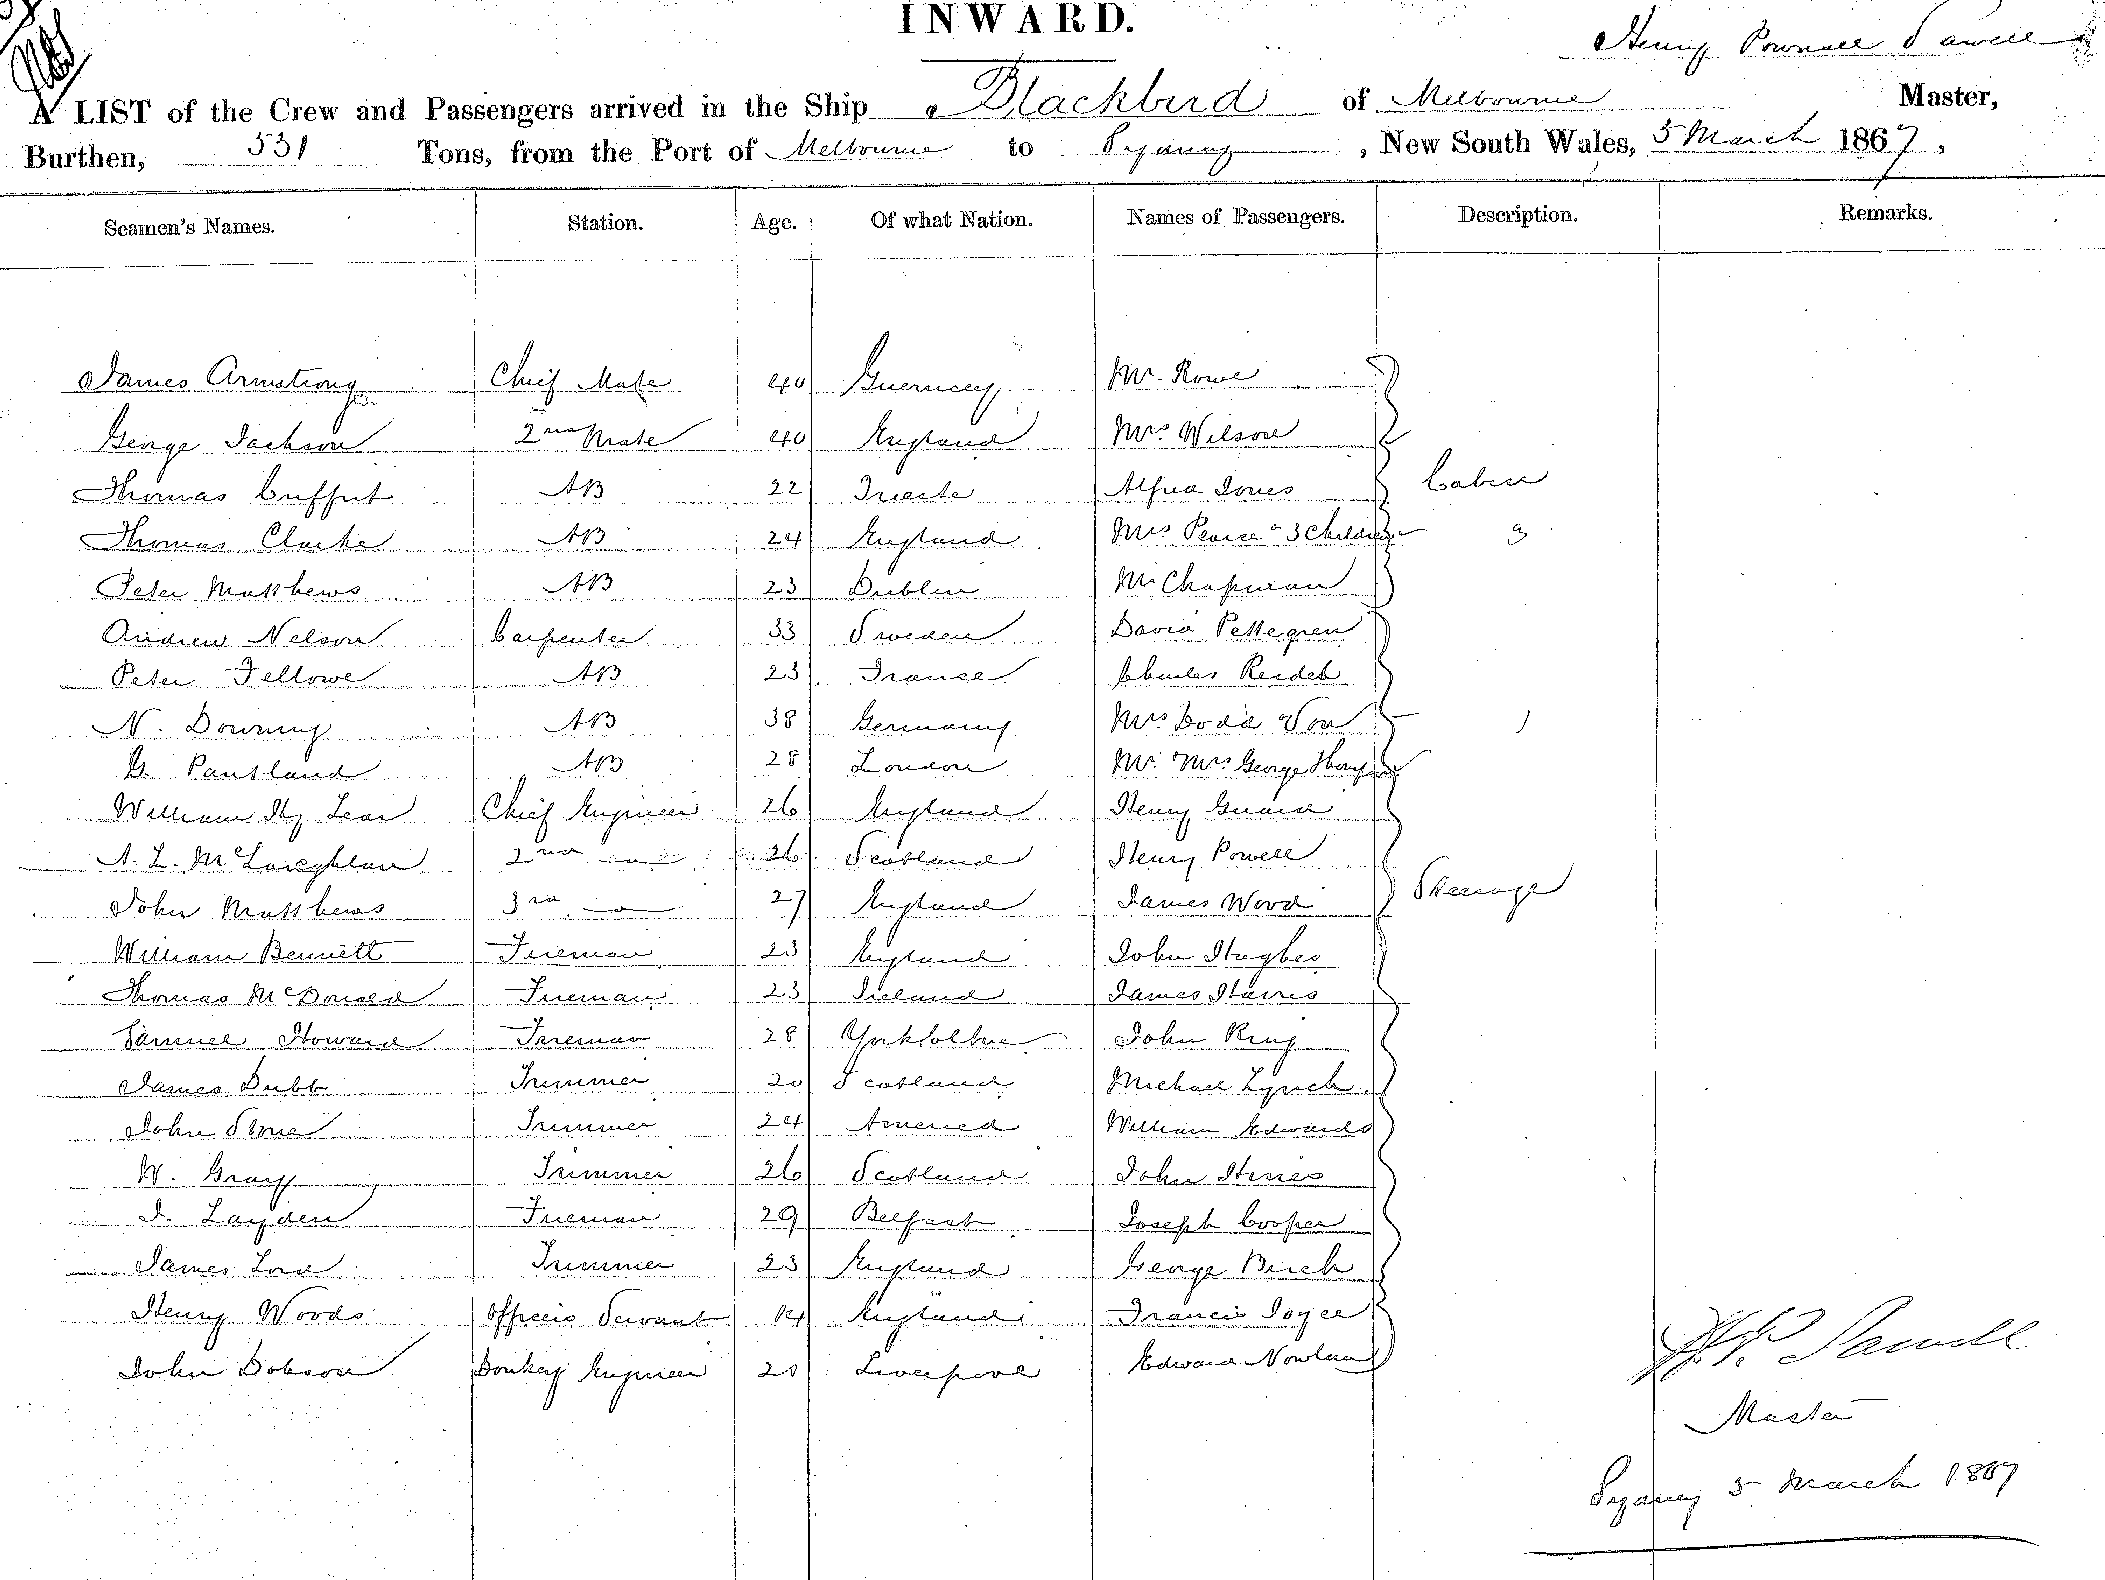 INWARD.
Henry Pownall Sawell
A LIST of the Crew and Passengers arrived in the Ship Blackbird of Melbourne Master,
Burthen, 531 Tons, from the Port of Melbourne to Sydney, New South Wales, 5 March 1867,
Seamen's Names. Station. Age. Of what Nation. Names of Passengers. Description. Remarks.
James Armstrong Chief Mate 40 Guernsey Mr. Rowe
George Jackson 2nd Mate 40 England Mrs Wilson
Thomas AB 22 Trieste Alfred Jones Cabin
Thomas Clarke AB 24 England Mrs Pearce & 3 Children 3
Peter Matthews AB 23 Dublin Mr Chapman
Andrew Nelson Carpenter 33 Sweden David Pettegren
Peter Fellowe AB 23 France Charles
N. Downing AB 38 Germany Mrs Dodd Son 1
G. Pantland AB 28 London Mr. Mrs George
William Hy Lear Chief Engineer 26 England Henry Guard
A. L. McLaughlan 2nd do 26 Scotland Henry Powell
John Matthews 3rd do 27 England James Wood Steerage
William Bennett Fireman 23 England John Hughes
Thomas McDonald Fireman 23 Ireland James Harris
Samuel Howard Fireman 28 John King
James Dubb Trimmer 20 Scotland Michael Lynch
John Stone Trimmer 24 America William Edwards
W. Gray Trimmer 26 Scotland John Hines
J. Layden Fireman 29 Belfast Joseph Cooper
James Lord Trimmer 23 England George Birch
Henry Woods Officers Servant 14 England Francis Joyce
John Dobson Donkey Engineer 20 Liverpool Edward Nowland
H. P. Sawell
Master
Sydney 5 March 1867